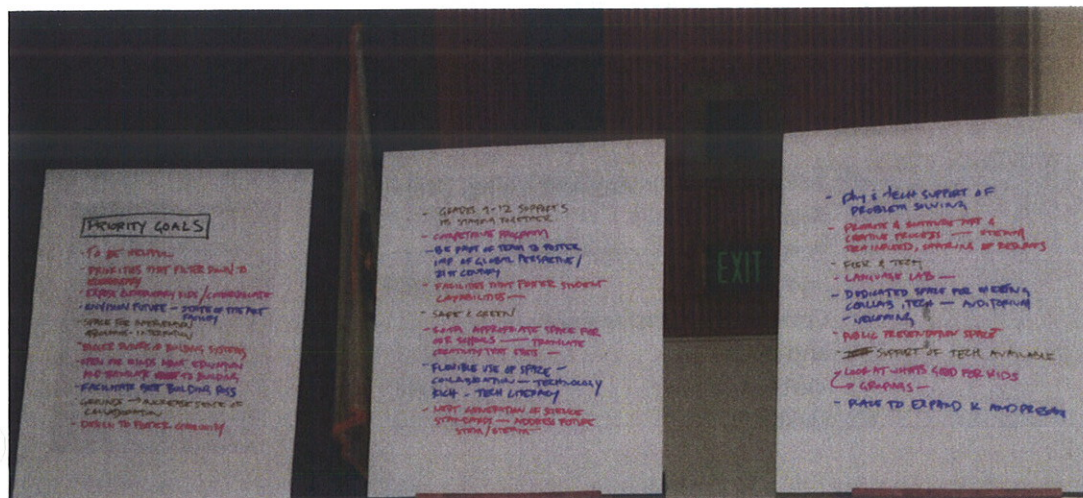 PRIORITY GOALS
- TO BE HELPFUL
- PRIORITIES THAT FILTER DOWN TO
ELEMENTARY
- EXPOSE ELEMENTARY KIDS / COORDINATE
- ENVISION FUTURE - STATE OF THE ART
FACILITY
- SPACE FOR INTERVENTION
- BUILDING SYSTEMS
- OPEN OUR MINDS ABOUT EDUCATION
AND TRANSLATE TO BUILDING
- FACILITATE BEST BUILDING POSS
- GROUNDS → INCREASE STATE OF
COLLABORATION
- DESIGN TO FOSTER COMMUNITY
- GRADES 9-12 SUPPORTS
HS STAYING TOGETHER
- COMPETITIVE PROGRAM
- BE PART OF TEAM TO FOSTER
IMP OF GLOBAL PERSPECTIVE /
21ST CENTURY
- FACILITIES THAT FOSTER STUDENT
CAPABILITIES —
- SAFE & GREEN
- APPROPRIATE SPACE FOR
OUR SCHOOLS — TRANSLATE
CREATIVITY THAT EXISTS —
- FLEXIBLE USE OF SPACE -
COLLABORATION — TECHNOLOGY
RICH - TECH LITERACY
- NEXT GENERATION OF SCIENCE
STANDARDS — ADDRESS FUTURE
STEM / STEAM
- PHY & TECH SUPPORT OF
PROBLEM SOLVING
- PROMOTE & ART &
CREATIVE PROCESS — STEAM
SHARING OF RESULTS
- FLEX & TECH
- LANGUAGE LAB —
- DEDICATED SPACE FOR MEETING
COLLAB, TECH — AUDITORIUM
- WELCOMING
- PUBLIC PRESENTATION SPACE
- SUPPORT OF TECH AVAILABLE
LOOK AT WHATS GOOD FOR KIDS
GROUPINGS —
- PLACE TO EXPAND K AND PRESCH
EXIT